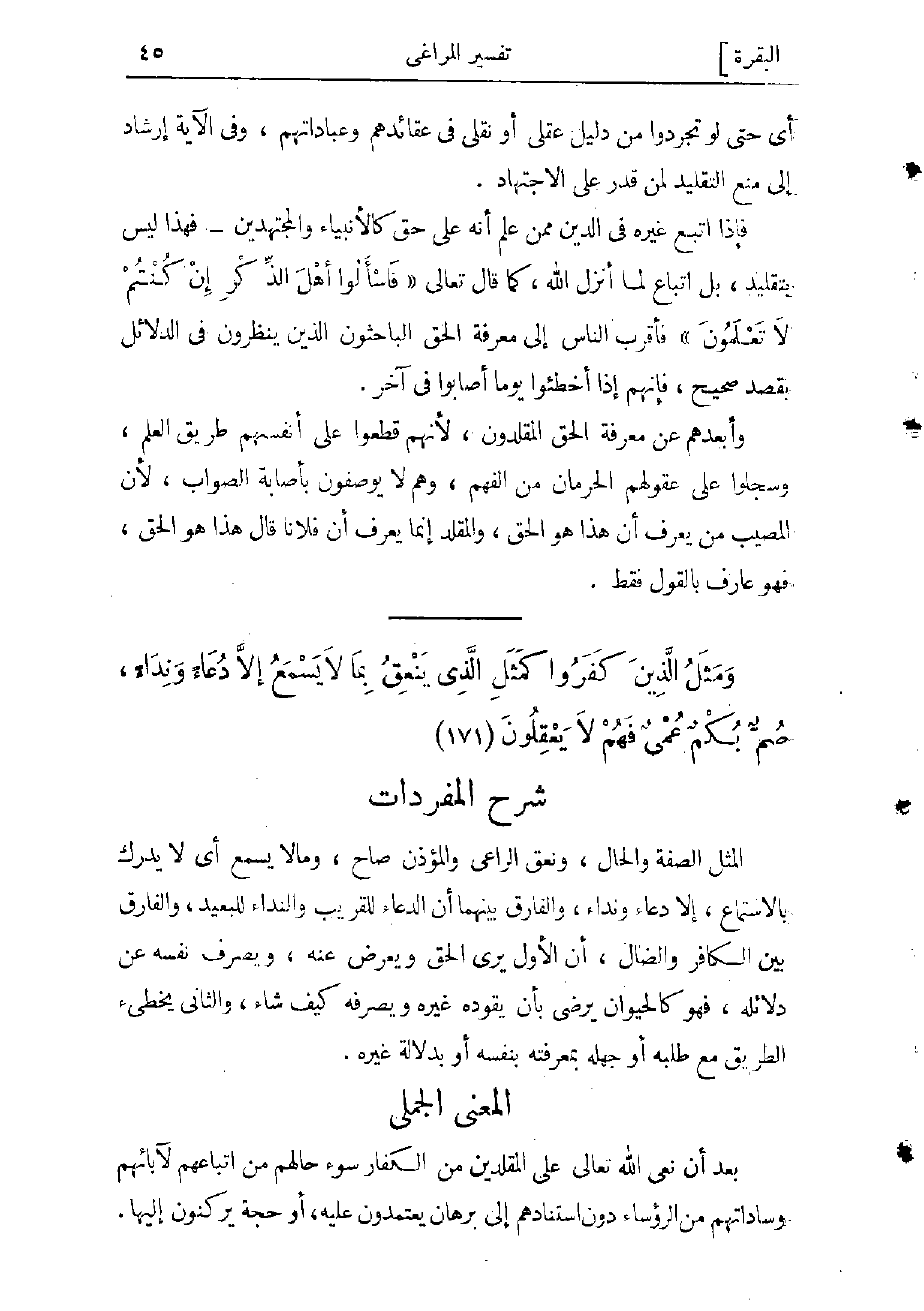 البقرة ] تفسير المراغى ٤٥
أى حتى لو تجردوا من دليل عقلى أو نقلى فى عقائدهم وعباداتهم ، وفى الآية إرشاد
إلى منع التقليد لمن قدر على الاجتهاد .
فإذا اتبع غيره فى الدين ممن علم أنه على حق كالأنبياء والمجتهدين – فهذا ليس
بتقليد ، بل اتباع لما أنزل الله ، كما قال تعالى « فَاسْأَلُوا أَهْلَ الذِّكْرِ إِنْ كُنْتُمْ
لَا تَعْلَمُونَ » فأقرب الناس إلى معرفة الحق الباحثون الذين ينظرون فى الدلائل
بقصد صحيح ، فإنهم إذا أخطئوا يوما أصابوا فى آخر .
وأبعدهم عن معرفة الحق المقلدون ، لأنهم قطعوا على أنفسهم طريق العلم ،
وسجلوا على عقولهم الحرمان من الفهم ، وهم لا يوصفون بأصابة الصواب ، لأن
المصيب من يعرف أن هذا هو الحق ، والمقلد إنما يعرف أن فلانا قال هذا هو الحق ،
فهو عارف بالقول فقط .
وَمَثَلُ الَّذِينَ كَفَرُوا كَمَثَلِ الَّذِى يَنْعِقُ بِمَا لَا يَسْمَعُ إِلاَّ دُعَاءً وَنِدَاءً ،
صُمٌّ بُكْمٌ عُمْىٌ فَهُمْ لَا يَعْقِلُونَ (١٧١)
شرح المفردات
المثل الصفة والحال ، ونعق الراعى والمؤذن صاح ، ومالا يسمع أى لا يدرك
بالاستماع ، إلا دعاء ونداء ، والفارق بينهما أن الدعاء للقريب والنداء للبعيد ، والفارق
بين الكافر والضال ، أن الأول يرى الحق ويعرض عنه ، ويصرف نفسه عن
دلائله ، فهو كالحيوان يرضى بأن يقوده غيره ويصرفه كيف شاء ، والثانى يخطىء
الطريق مع طلبه أو جهله بمعرفته بنفسه أو بدلالة غيره .
المعنى الجملى
بعد أن نعى الله تعالى على المقلدين من الكفار سوء حالهم من اتباعهم لآبائهم
وساداتهم من الرؤساء دون استنادهم إلى برهان يعتمدون عليه، أو حجة يركنون إليها .